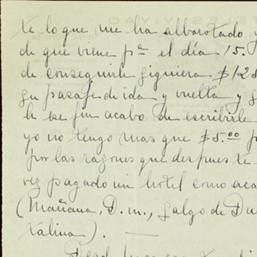 te loque me ha alborotado y
de que viene pª el día 15.
de conseguirle siquiera $125
su pasaje de ida y vuelta y
le se fin acabo de escribirle
yo no tengo mas que $5.00 p
por las razones que despues te
vez pagado mi hotel como aca
(Mañana, D.m., salgo de Du
talina). —